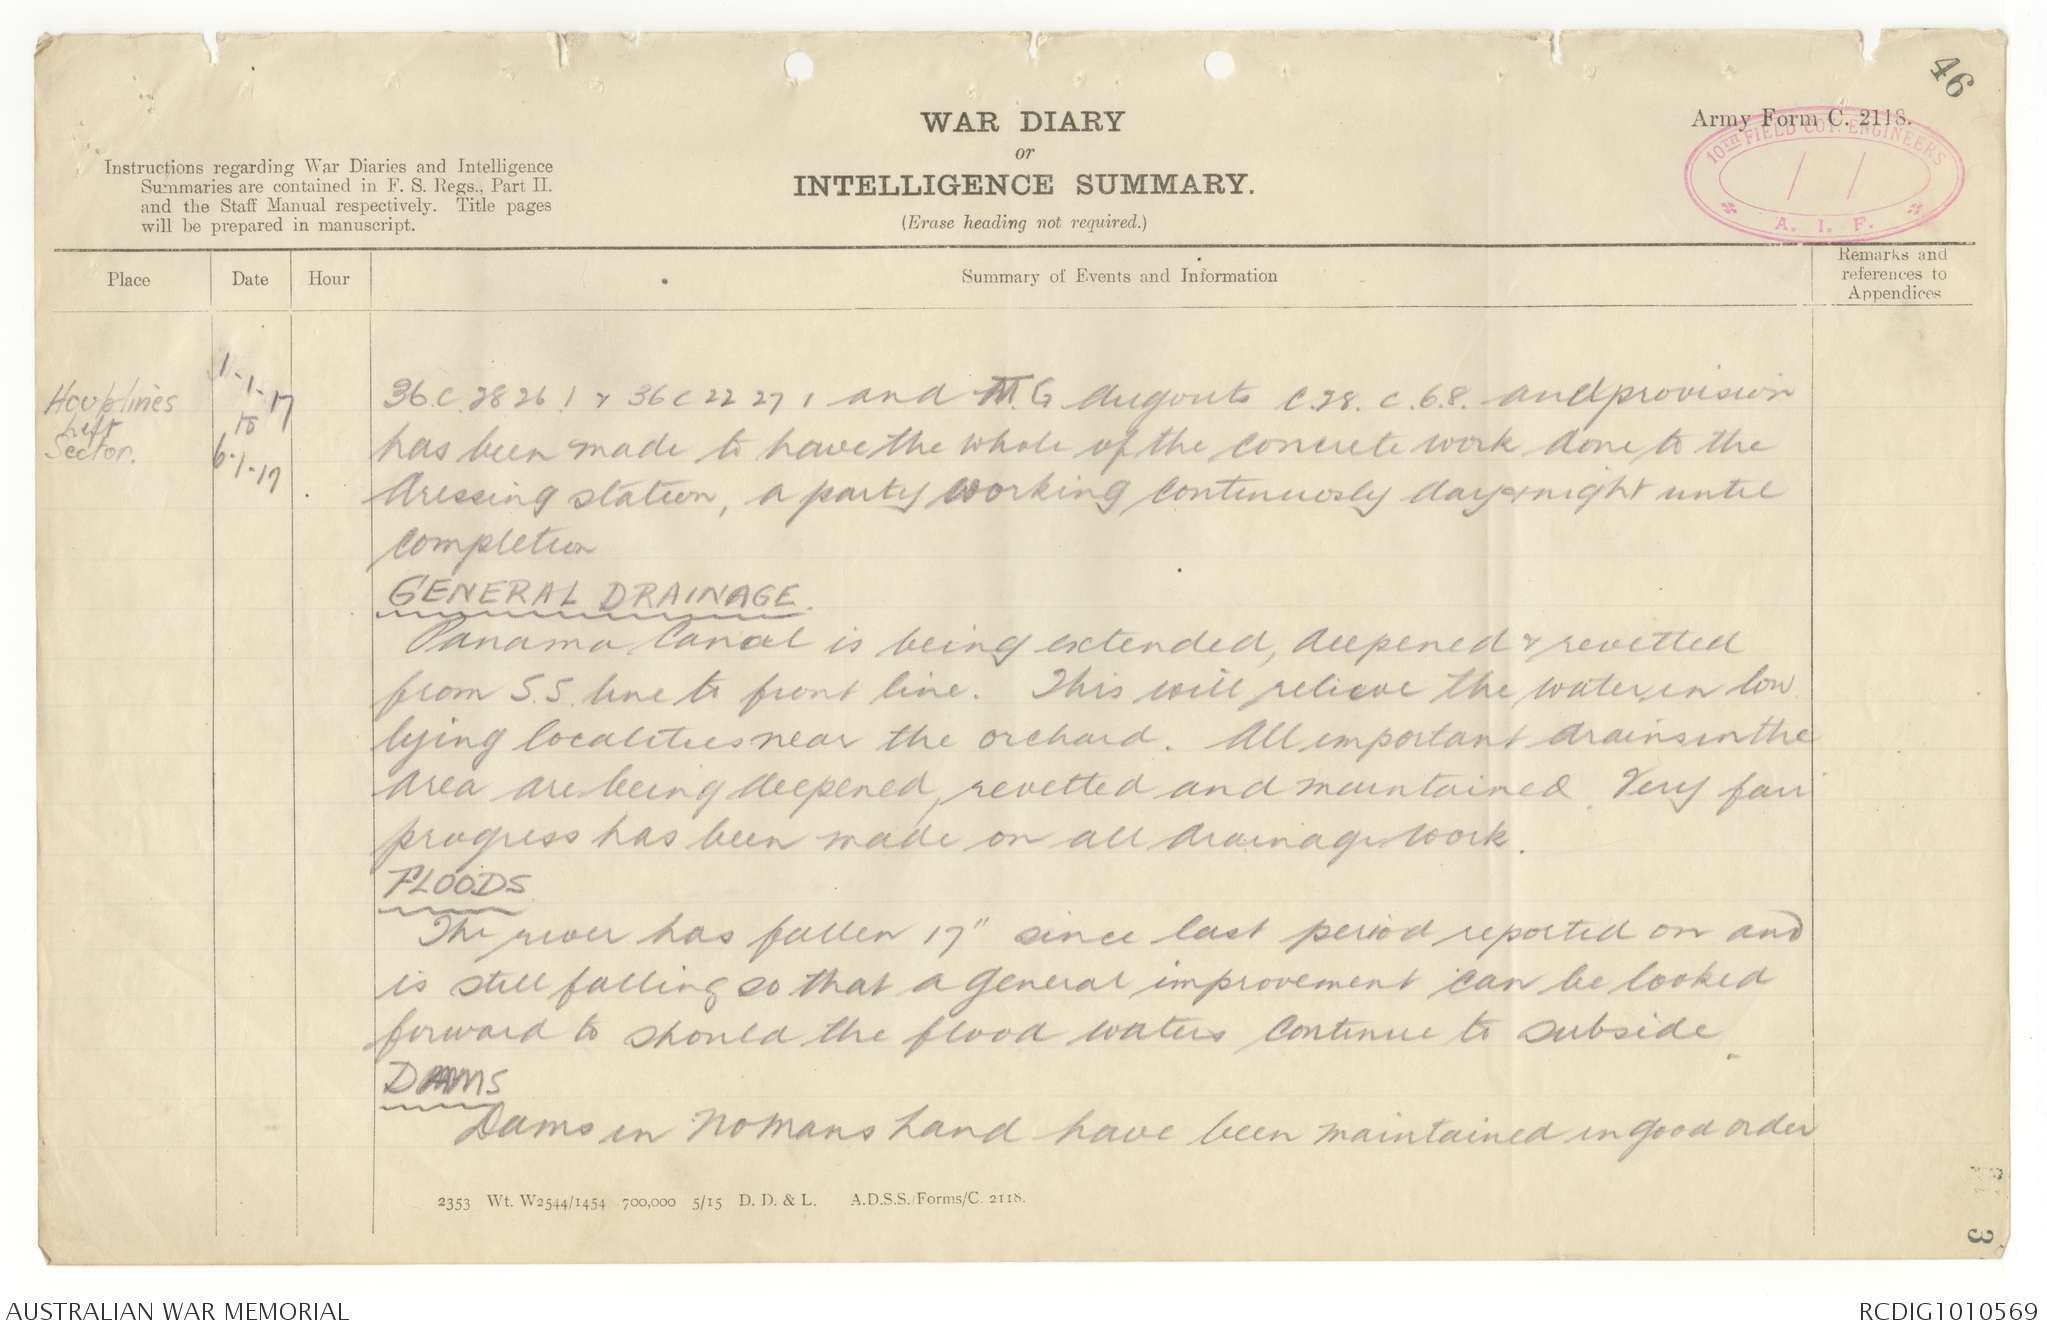 46
WAR DIARY
or
INTELLIGENCE SUMMARY.
(Erase heading not required.)
Army Form C. 2118.
10TH FIELD COY. ENGINEERS
A. I. F.
Instructions regarding War Diaries and Intelligence
Summaries are contained in F. S. Regs., Part II.
and the Staff Manual respectively. Title pages
will be prepared in manuscript.
Place
Date
Hour
Summary of Events and Information
Remarks and
references to
Appendices
Houplines
Left
Sector.
1-1-17
to
6-1-17
36.C.28 26.1 & 36 C 22 27 1 and M.G dugouts C.28. C.6.8. and provision
has been made to have the whole of the concrete work done to the
dressing station, a party working continuously day & night until
completion
GENERAL DRAINAGE.
Panama Canal is being extended, deepened & revetted
from S.S. line to front line. This will relieve the water in low
lying localities near the orchard. All important drains in the
area are being deepened, revetted and maintained. Very fair
progress has been made on all drainage work.
FLOODS
The river has fallen 17" since last period reported on and
is still falling so that a general improvement can be looked
forward to should the flood waters continue to subside.
DAMS
Dams in No Mans Land have been maintained in good order
2353 Wt. W2544/1454 700,000 5/15 D. D. & L. A.D.S.S./Forms/C. 2118.
3
AUSTRALIAN WAR MEMORIAL
RCDIG1010569